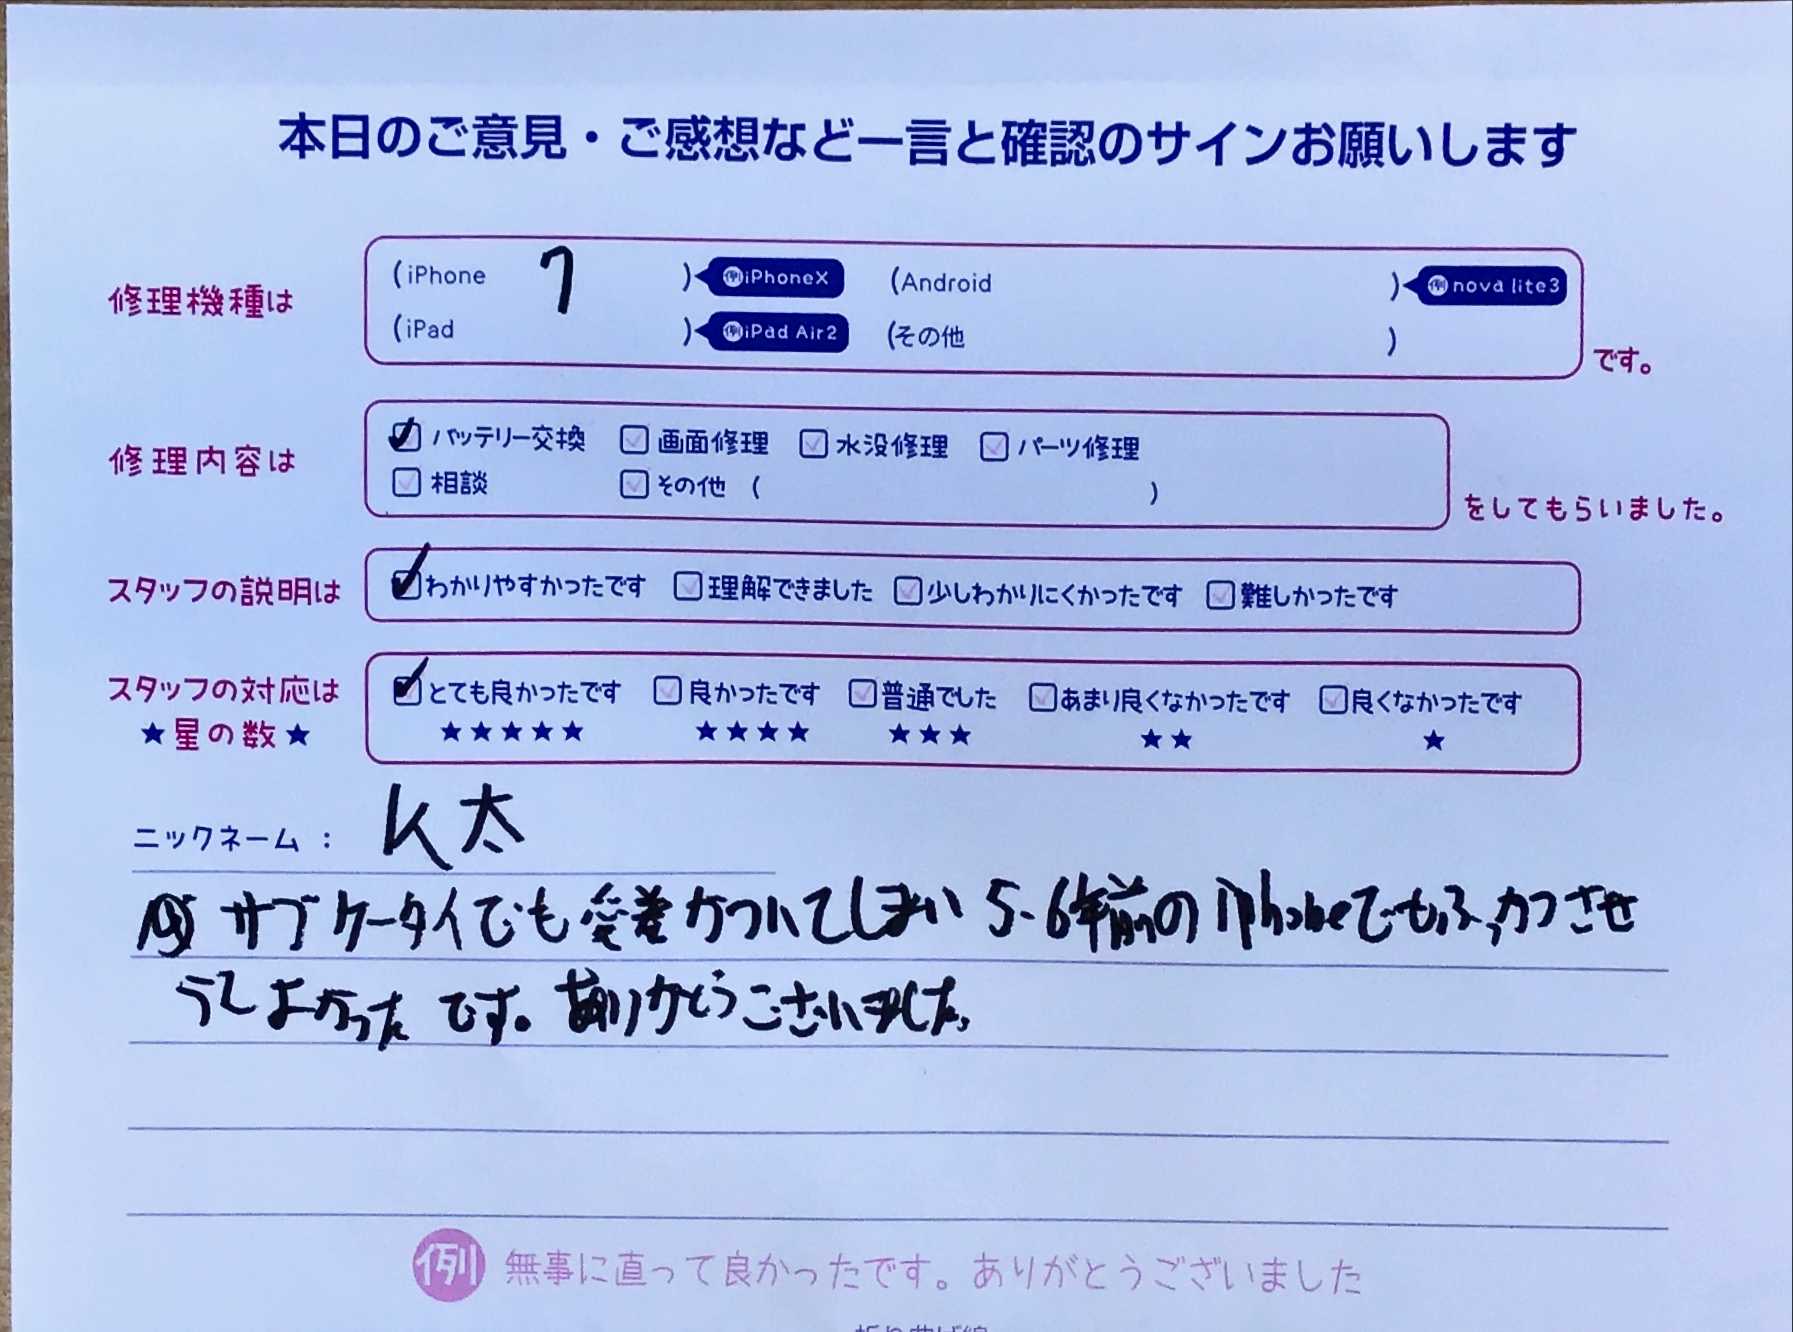 本日のご意見・ご感想など一言と確認のサインお願いします
修理機種は
(iPhone 7 ) 例iPhoneX (Android ) 例nova lite3
(iPad ) 例iPad Air2 (その他 )
です。
修理内容は
バッテリー交換 画面修理 水没修理 パーツ修理
相談 その他 ( )
をしてもらいました。
スタッフの説明は
わかりやすかったです 理解できました 少しわかりにくかったです 難しかったです
スタッフの対応は
とても良かったです 良かったです 普通でした あまり良くなかったです 良くなかったです
★星の数★
★★★★★ ★★★★ ★★★ ★★ ★
ニックネーム: K太
サブケータイでも愛着がついてしまい 5-6年前のiPhoneでもふっかつさせ
られてよかったです。ありがとうございました。
例 無事に直って良かったです。ありがとうございました